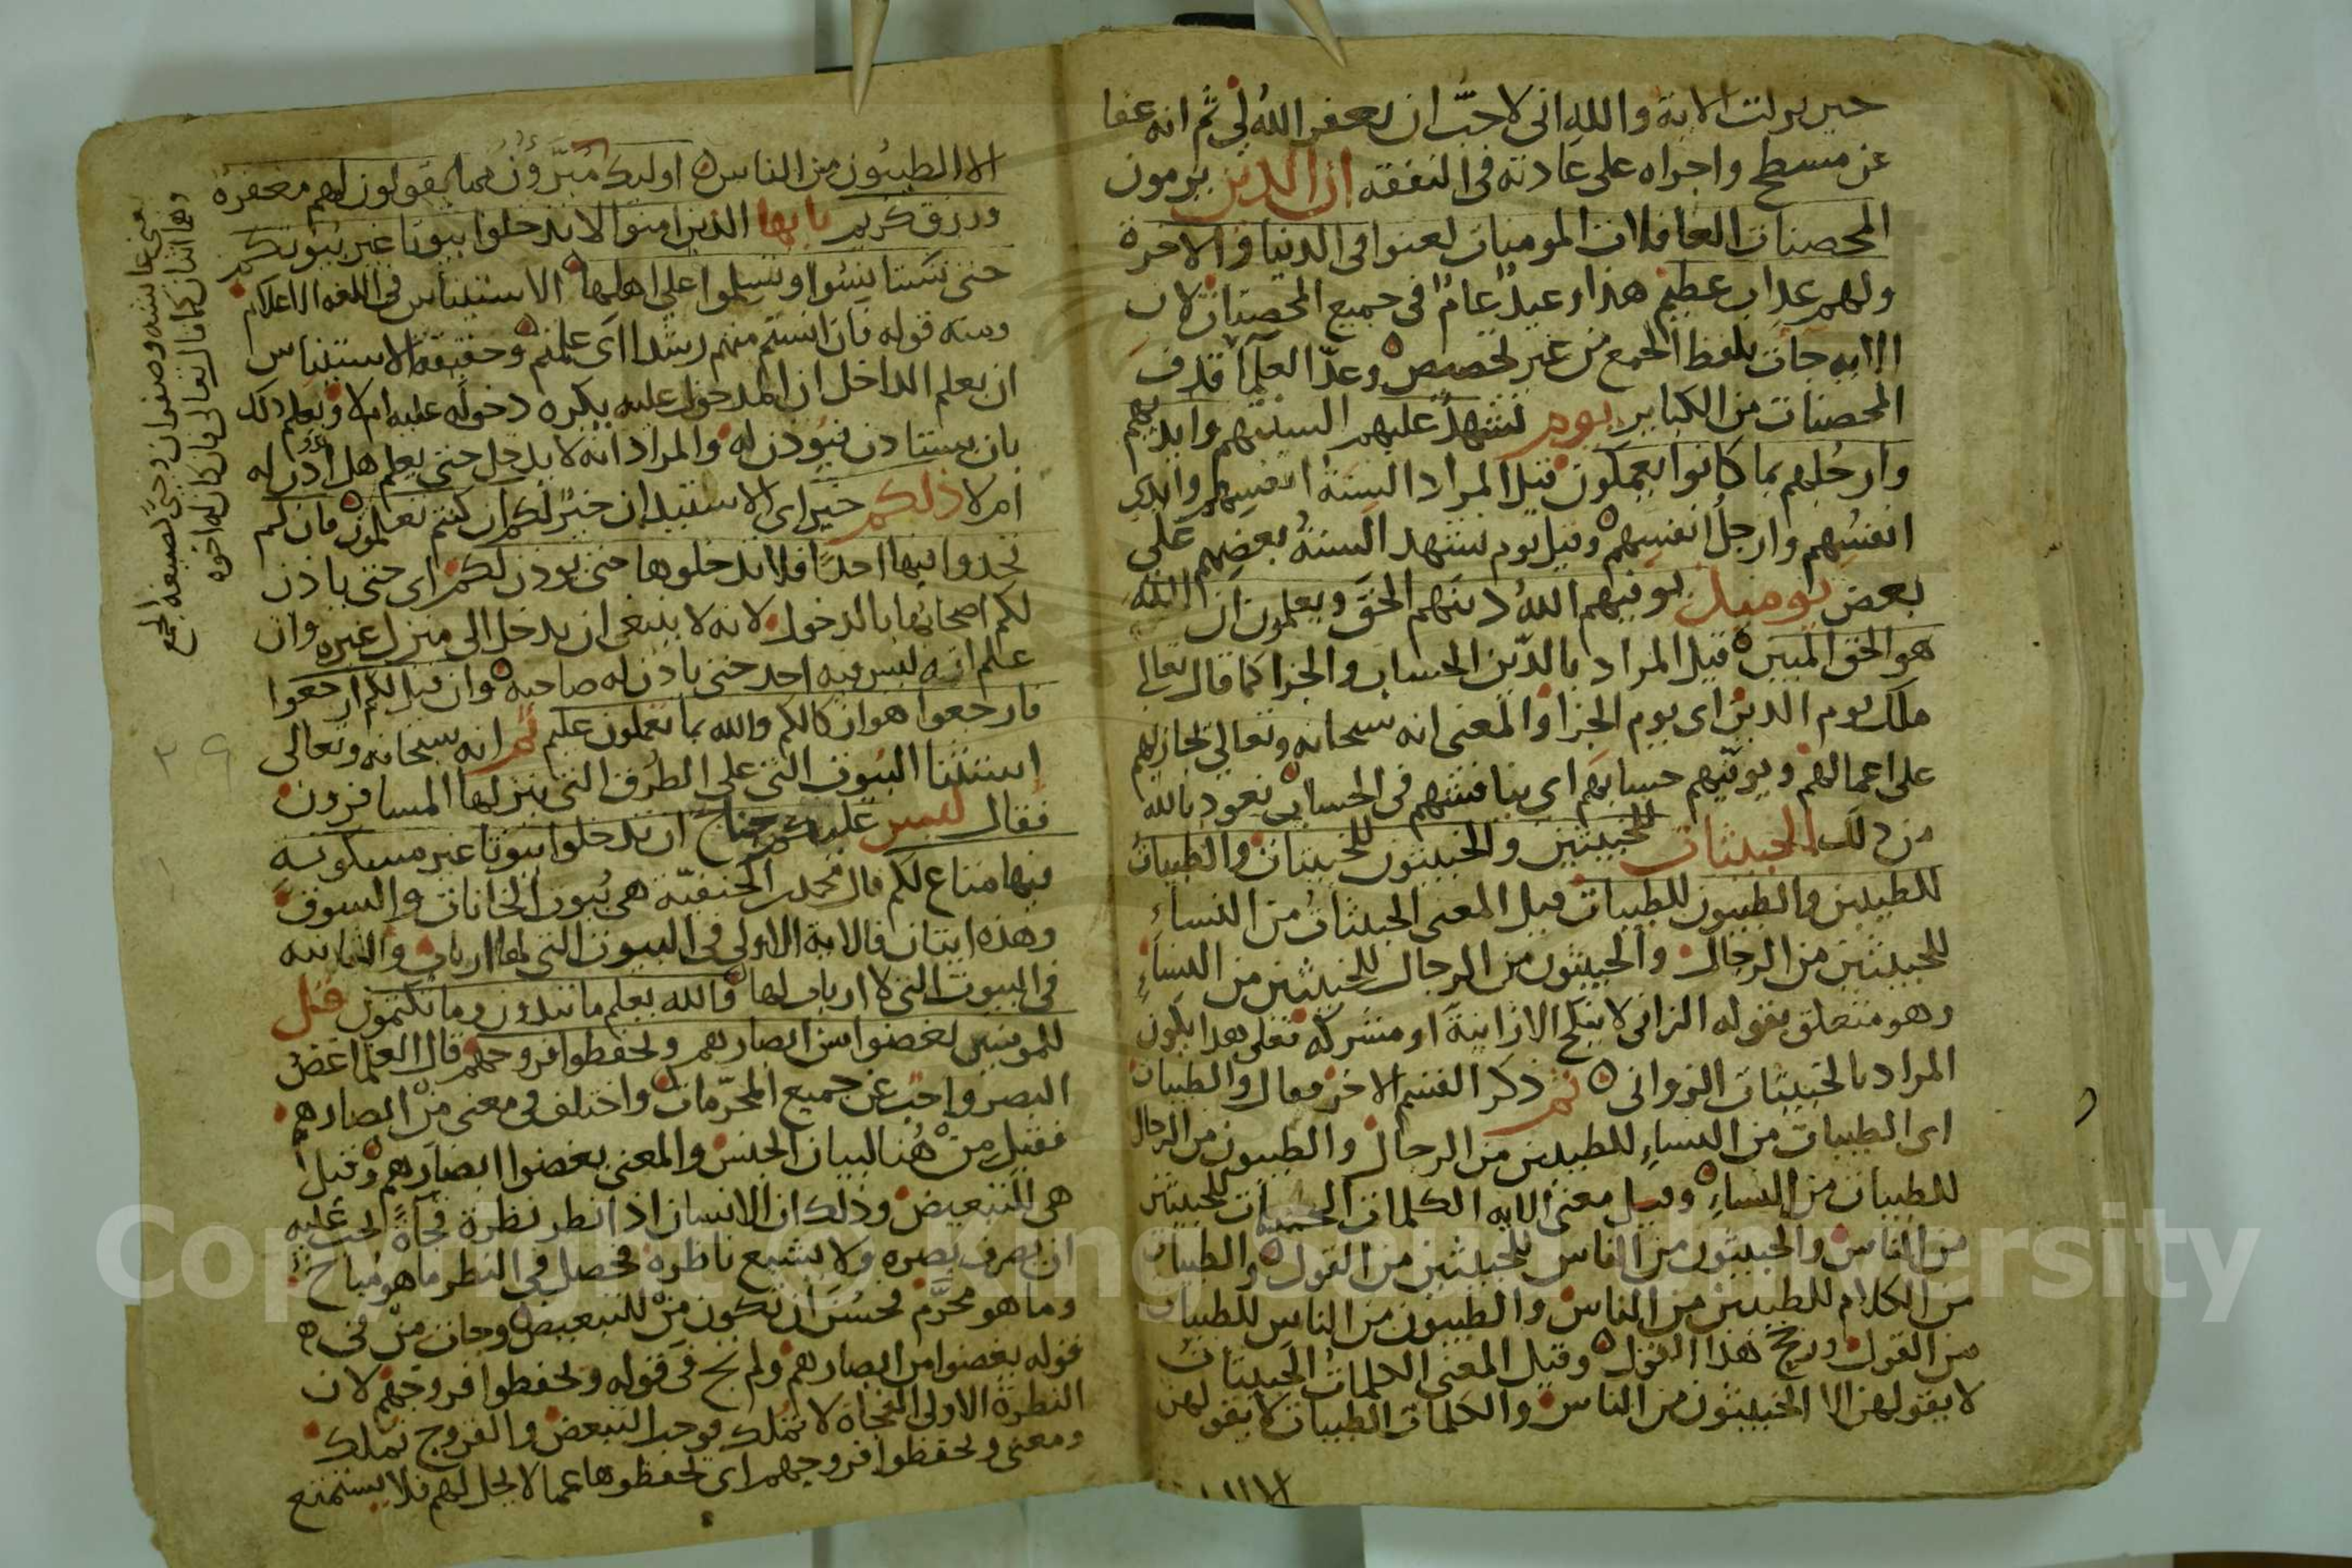 حين نزلت الاية والله اني لاحبّ ان يعفر اللهُ لي ثم انه عفا
عن مسطح واجراه على عادته في النفقه ان الذين يرمون
المحصنات الغافلات المومنات لعنوا في الدنيا والاخرة
ولهم عذاب عظيم هذا وعيدٌ عامٌ في جميع المحصنات لان
الايه جات بلفظ الجمع من غير تخصيص وعدّ العلما قذف
المحصنات من الكباير يوم تشهد عليهم السنتهم وايديهم
وارجُلهم بما كانوا يعملون قيل المراد السنة انفسهم وايدي
انفسُهم وارجلُ انفسهم وقيل يوم تشهد السنةُ بعضهم على
بعض يوميذ يوفيهم اللهُ دينهم الحق ويعلمون ان الله
هو الحق المبين قيل المراد بالدّين الحساب والجزا كما قال تعالى
ملك يوم الدين اى يوم الجزا والمعنى انه سبحانه وتعالى يجازيهم
على اعمالهم ويوفّيهم حسابهم اى يناقشهم في الحساب نعوذ بالله
من ذلك الخبيثات للخبيثين والخبيثون للخبيثات والطيبات
للطيبين والطيبون للطيبات قيل المعنى الخبيثاتُ من النساءِ
للخبيثين من الرجال والخبيثون من الرجال للخبيثين من النساءِ
وهو متعلق بقوله الزاني لا ينكح الا زانيةً او مشركه فعلى هذا يكون
المراد بالخبيثات الزواني ثم ذكر القسم الاخر فقال والطيبات
اى الطيبات من النساءِ للطيبين من الرجال والطيبون من الرجال
للطيبات من النساءِ وقيل معنى الايه الكلمات الخبيثات للخبيثين
من الناس والخبيثون من الناس للخبيثين من القول والطيبات
من الكلام للطيبين من الناس والطيبون من الناس للطيبات
من القول ورجح هذا القول وقيل المعنى الكلماتُ الخبيثاتُ
لا يقولهن الا الخبيثون من الناس والكلمات الطيبات لا يقولهن
الا الطيبُون من الناس اوليك مُبرّؤُنُ مما يقولون لهم معفرة
ورزق كريم يايها الذين امنوا لا تدخلوا بيوتا غير بيوتكم
حتى تستانِسُوا وتسلموا على اهلها الاستيناس في اللغه الاعلام
ومنه قوله فان انستم منهم رشدا اى علمتم وحقيقة الاستيناس
ان يعلم الداخل ان المدخول عليه يكره دخوله عليه ام لا ويعلم ذلك
بان يستاذن فيُوذن له والمراد انه لا يدخل حتى يعلم هل اذن له
ام لا ذلكم خير اى الاستيذان خيرٌ لكم ان كنتم تعلمون فان لم
تجدوا فيها احداً فلا تدخلوها حتى يوذن لكم اى حتى ياذن
لكم اصحابُها بالدخول لانه لا ينبغي ان يدخل الى منزل غيره وان
علم انه ليس فيه احد حتى ياذن له صاحبه وان قيل لكم ارجعوا
فارجعوا هو ازكا لكم والله بما تعملون عليم ثم انه سبحانه وتعالى
استثنا البيُوت التي على الطرُق التي ينزلها المسافرون
فقال ليس عليكم جناحٌ ان تدخلوا بيوتا غير مسكونةٍ
فيها متاع لكم قال محمد بن الحنفيّة هي بُيوت الخانات والسوق
وهذه ايتان فالاية الاولى في البيوت التي لها ارباب والثانيه
في البيوت التي لا ارباب لها والله يعلم ما تبدون وما تكتمون قل
للمومنين يغضوا من ابصارهم ويحفظوا فروجهم قال العلما غضُ
البصر واجب عن جميع المحرّمات واختلف في معنى من ابصارهم
فقيل مِنْ هُنا لبيان الجنس والمعنى يغضوا ابصارهم وقيل
هي للتبعيض وذلك ان الانسان اذا نظر نظرة فجآةً لحب عليه
ان يصرف بصره ولا يتبع ناظره فحصل في النظر ما هو مُباح
وما هو محرَّم فحسُن ان تكون مِنْ للتبعيض وجات مِنْ في
قوله يغضوا من ابصارهم ولم تج في قوله ويحفظوا فروجهم لان
النظرة الاولى الفجاة لا تملك فوجب التبعض والفروج تملك
ومعنى ويحفظوا فروجهم اى يحفظوها عما لا يحل لهم فلا يستمتع
وهما اثنان كما قال تعالى فان كان له اخوه
يعنى عايشه وصفوان وجي لصيغه الجمع
Copyright © King Saud University